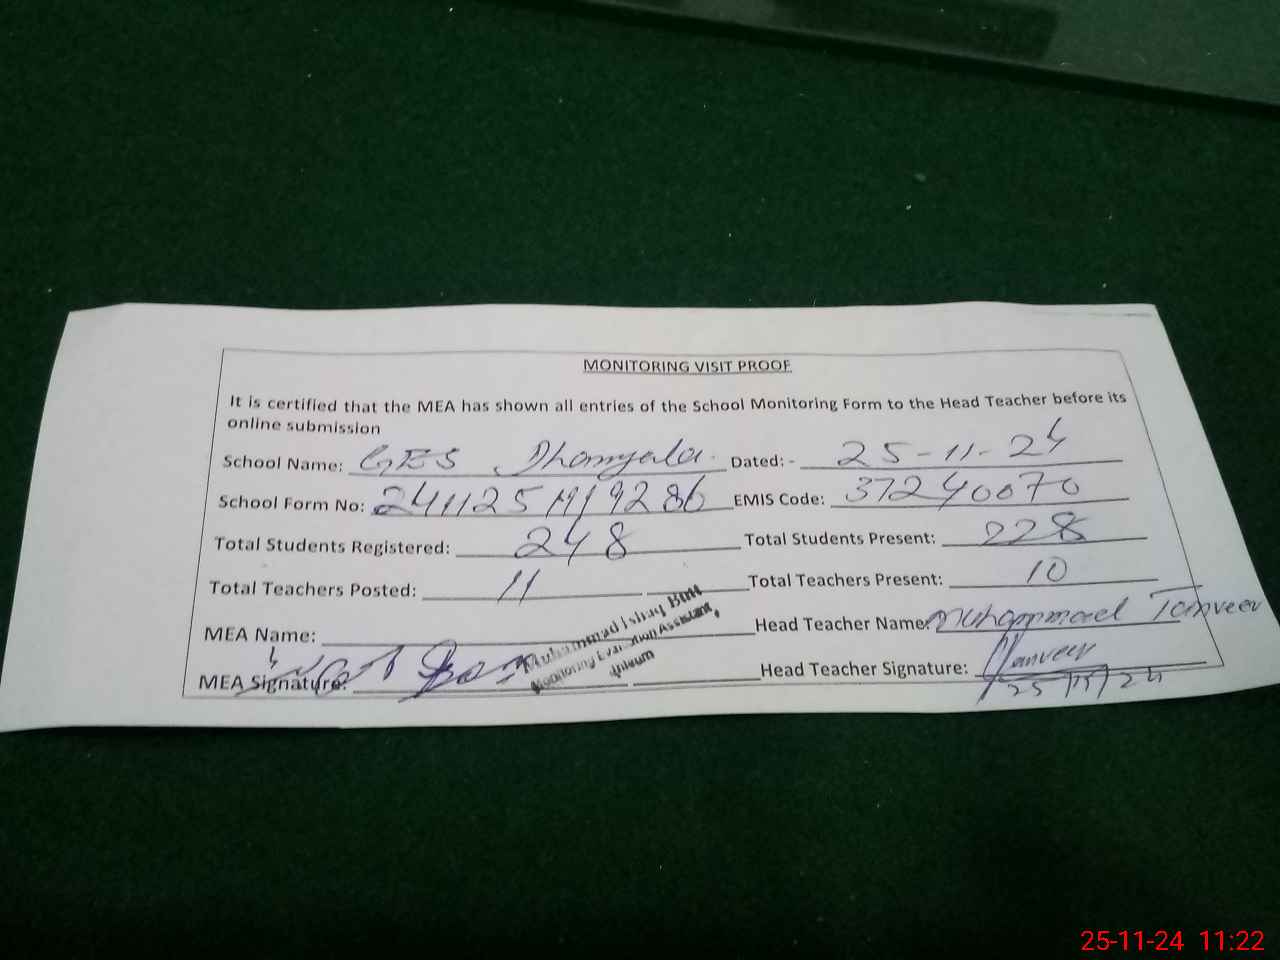 MONITORING VISIT PROOF
It is certified that the MEA has shown all entries of the School Monitoring Form to the Head Teacher before its
online submission
School Name: GES Dhamyala Dated: - 25-11-24
School Form No: EMIS Code: 37240070
Total Students Registered: 248 Total Students Present: 228
Total Teachers Posted: 11 Total Teachers Present: 10
MEA Name: Head Teacher Name: Muhammad Tanveer
Muhammad Ishaq Butt
Monitoring Evaluation Assistant,
Jhleum
MEA Signature: Head Teacher Signature: Tanveer
25/11/24
25-11-24 11:22